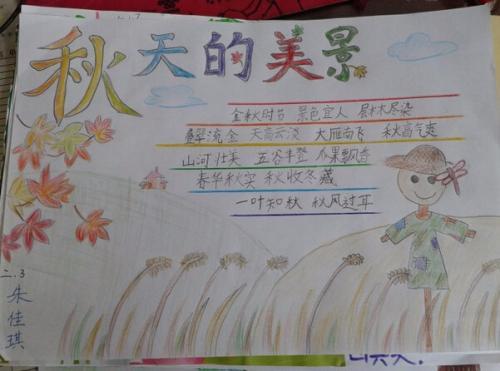 秋天的美景
金秋时节 景色宜人 层林尽染
叠翠流金 天高云淡 大雁南飞 秋高气爽
山河壮美 五谷丰登 瓜果飘香
春华秋实 秋收冬藏
一叶知秋 秋风过耳
二.3
朱佳琪